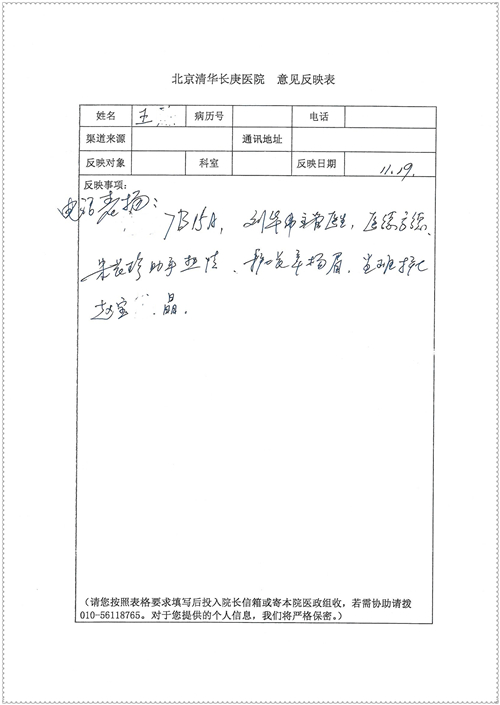 北京清华长庚医院 意见反映表
姓名 王 病历号 电话
渠道来源 通讯地址
反映对象 科室 反映日期 11.19.
反映事项：
电话表扬：
7B15A, 刘华伟主管医生, 医德高德、
助手热情、 章扬眉、
赵宝 晶.
(请您按照表格要求填写后投入院长信箱或寄本院医政组收，若需协助请拨
010-56118765。对于您提供的个人信息，我们将严格保密。)